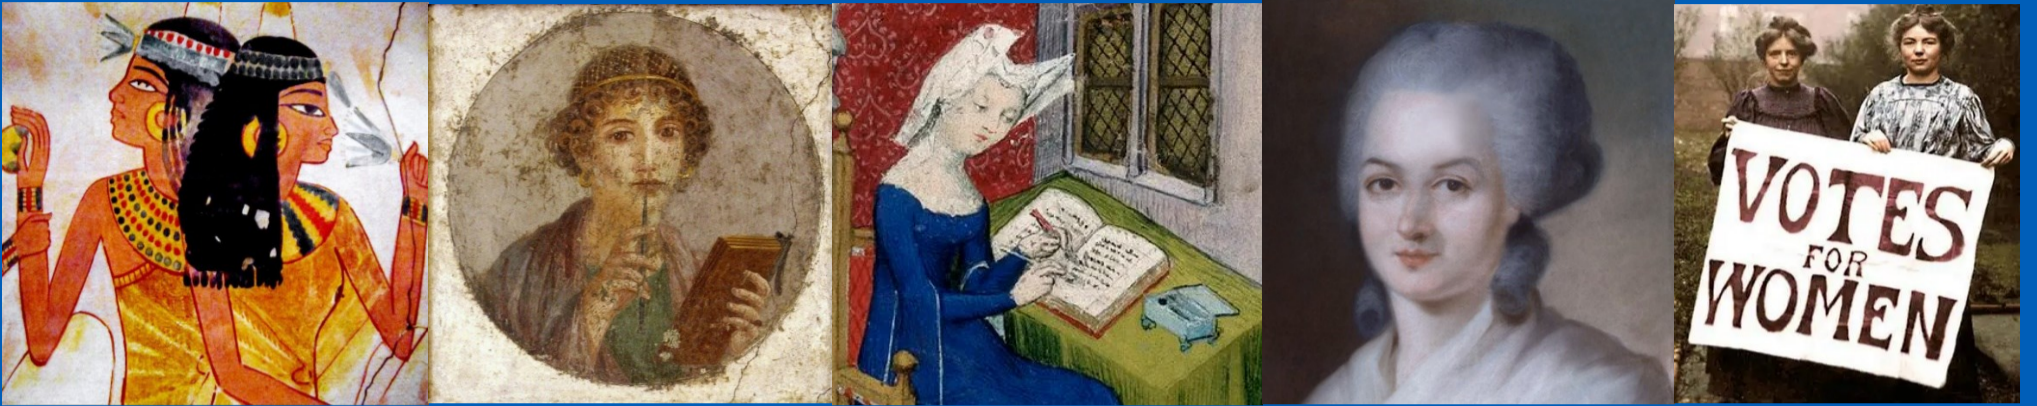 VOTES
FOR
WOMEN